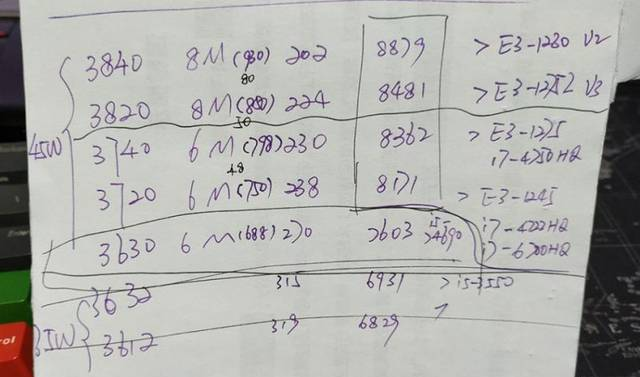 3840 8M (930) 202 8879 > E3-1230 V2
80
3820 8M (880) 224 8481 > E3-1275L V3
50
45W 3740 6M (798) 230 8362 > E3-1275
i7-4750HQ
48
3720 6M (750) 238 8171 > E3-1245
3630 6M (688) 270 7603 i5- >4690 i7-4722HQ
i7-6700HQ
3632 315 6931 > i5-3550
35W
3612 319 6829
rol